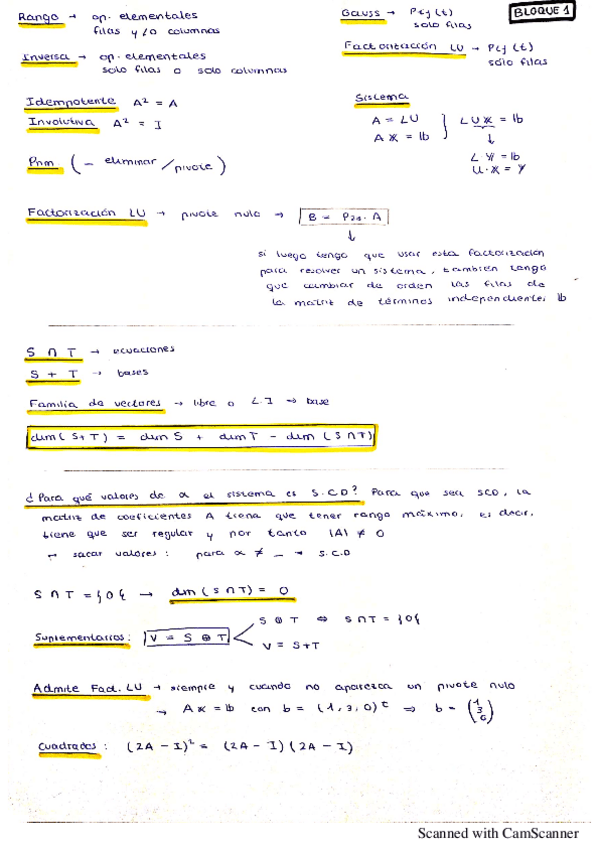 BLOQUE 1
Rango → op. elementales
filas y/o columnas
Gauss → Pij (t)
solo filas
Inversa → op. elementales
solo filas o solo columnas
Factorización LU → Pij (t)
sólo filas
Idempotente A² = A
Involutiva A² = I
Sistema
A = LU
Ax = b
LUx = b
↓
Ly = b
U·x = y
Pnm (- eliminar / pivote)
Factorización LU → pivote nulo → B = P₂₁ · A
↓
si luego tengo que usar esta factorización
para resolver un sistema, también tengo
que cambiar de orden las filas de
la matriz de términos independientes b
S ∩ T → ecuaciones
S + T → bases
Familia de vectores → libre o L.I → base
dim(S+T) = dim S + dim T - dim (S∩T)
¿Para qué valores de α el sistema es S.C.D? Para que sea SCD, la
matriz de coeficientes A tiene que tener rango máximo, es decir,
tiene que ser regular y por tanto |A| ≠ 0
→ sacar valores: para α ≠ _ → S.C.D
S ∩ T = {0} → dim (S∩T) = 0
Suplementarios: V = S ⊕ T
S ⊕ T ⇔ S∩T = {0}
V = S+T
Admite Fact. LU → siempre y cuando no aparezca un pivote nulo
→ Ax = b con b = (1, 3, 0)ᵗ ⇒ b = (1 3 0)
Cuadrados: (2A - I)² = (2A - I) (2A - I)
Scanned with CamScanner